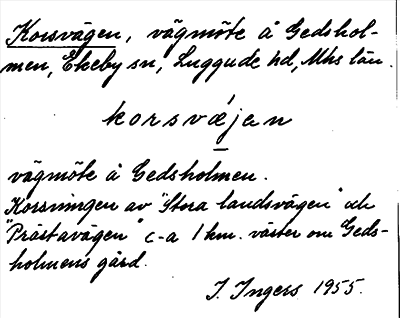 Korsvägen, vägmöte å Gedshol-
men, Ekeby sn, Luggude hd, Mhs län.
korsvǽjen
vägmöte å Gedsholmen.
Korsningen av "Stora landsvägen" och
"Prästavägen" c-a 1 km. väster om Geds-
holmens gård.
I. Ingers 1955.